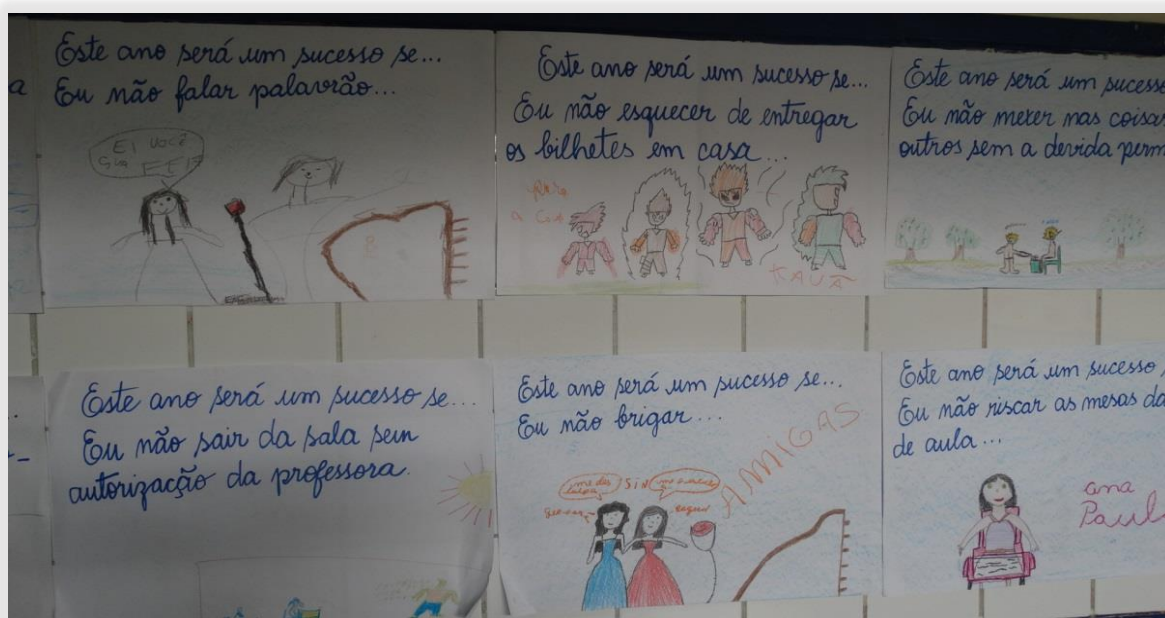 a
Este ano será um sucesso se...
Eu não falar palavrão...
EI VOCÊ
Este ano será um sucesso se...
Eu não esquecer de entregar
os bilhetes em casa...
KAUÃ
Este ano será um sucesso
Eu não mexer nas coisas
outros sem a devida perm
Este ano será um sucesso se...
Eu não sair da sala sem
autorização da professora.
Este ano será um sucesso se...
Eu não brigar...
AMIGAS
SIM
Este ano será um sucesso
Eu não riscar as mesas da
de aula...
ana
Paul